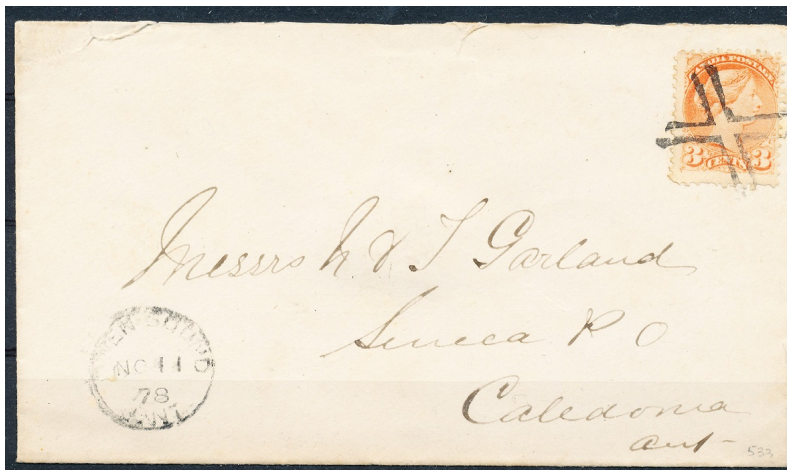 CANADA POSTAGE
3 CENTS 3
Messrs N & T Garland
Seneca P O
Caledonia
Ont
OWEN SOUND
NO 11
78
ONT
533